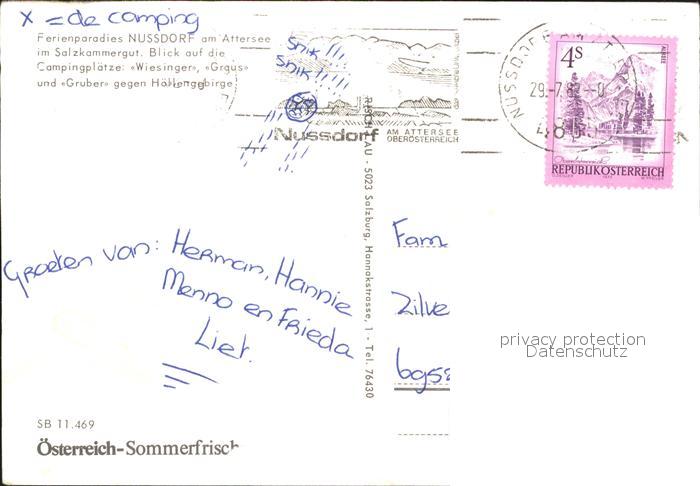 X = de camping
Ferienparadies NUSSDORF am Attersee
im Salzkammergut. Blick auf die
Campingplätze: «Wiesinger», «Graus»
und «Gruber» gegen Höllengebirge
snik !!!
snik !!!!!
Nussdorf AM ATTERSEE
OBERÖSTERREICH
4S
REPUBLIK ÖSTERREICH
5023 Salzburg, Hannakstrasse, 1 - Tel. 76430
Groeten van: Herman, Hannie
Menno en Frieda
Liet.
Fam
Zilve
privacy protection
Datenschutz
SB 11.469
Österreich-Sommerfrisch